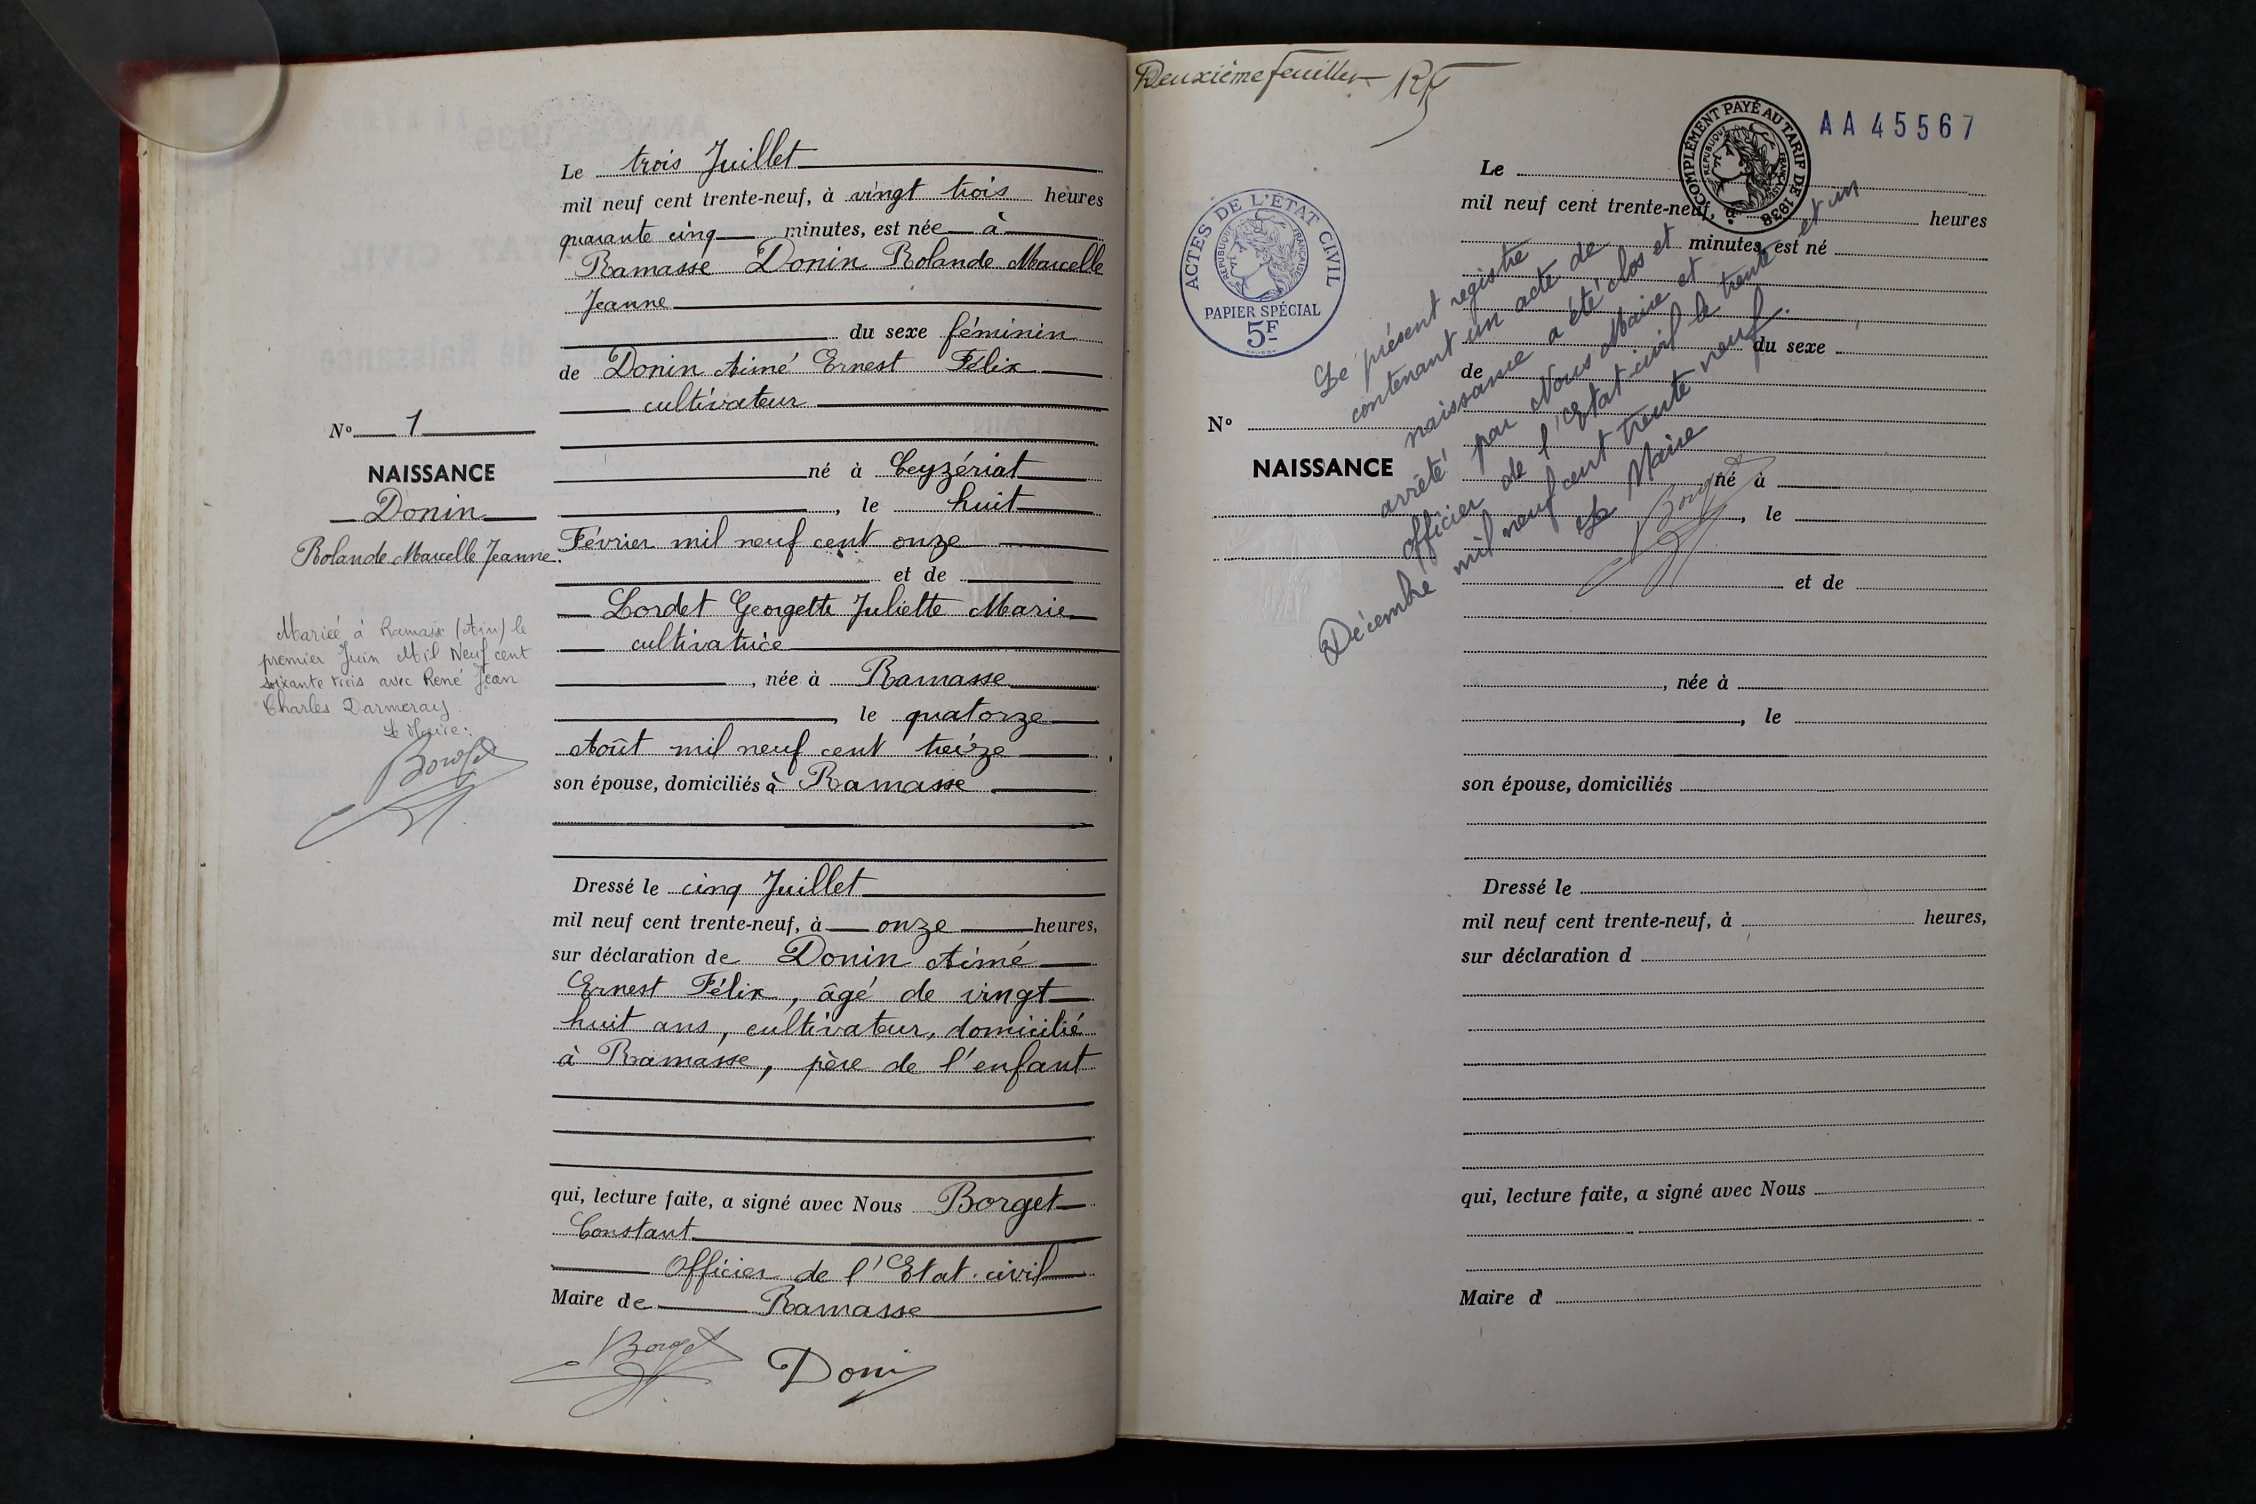 Le trois Juillet
mil neuf cent trente-neuf, à vingt trois heures
quarante cinq minutes, est née à
Ramasse Donin Rolande Marcelle
Jeanne
du sexe féminin
de Donin Aimé Ernest Félix
cultivateur
né à Ceyzériat
, le huit
Février mil neuf cent onze
et de
Lordet Georgette Juliette Marie
cultivatrice
, née à Ramasse
, le quatorze
Août mil neuf cent treize
son épouse, domiciliés à Ramasse
Dressé le cinq Juillet
mil neuf cent trente-neuf, à onze heures,
sur déclaration de Donin Aimé
Ernest Félix, âgé de vingt
huit ans, cultivateur, domicilié
à Ramasse, père de l'enfant
qui, lecture faite, a signé avec Nous Borget
Constant
Officier de l'Etat-civil
Maire de Ramasse
Borget Donin
N° 1
NAISSANCE
Donin
Rolande Marcelle Jeanne.
Mariée à Ramasse (Ain) le
premier Juin Mil Neuf cent
soixante trois avec René Jean
Charles Darmeray
Le Maire:
Borget
Deuxième feuillet
AA45567
COMPLÉMENT PAYÉ AU TARIF DE 1938
RÉPUBLIQUE FRANÇAISE
ACTES DE L'ÉTAT CIVIL
RÉPUBLIQUE FRANÇAISE
PAPIER SPÉCIAL
5F
Le
mil neuf cent trente-neuf, à heures
minutes, est né
du sexe
de
N°
NAISSANCE
né à
, le
et de
, née à
, le
son épouse, domiciliés
Dressé le
mil neuf cent trente-neuf, à heures,
sur déclaration d
qui, lecture faite, a signé avec Nous
Maire d
Le présent registre
contenant un acte de
naissance a été clos et
arrêté par Nous Maire et
officier de l'Etat-civil le trente et un
Décembre mil neuf cent trente neuf.
Le Maire
Borget